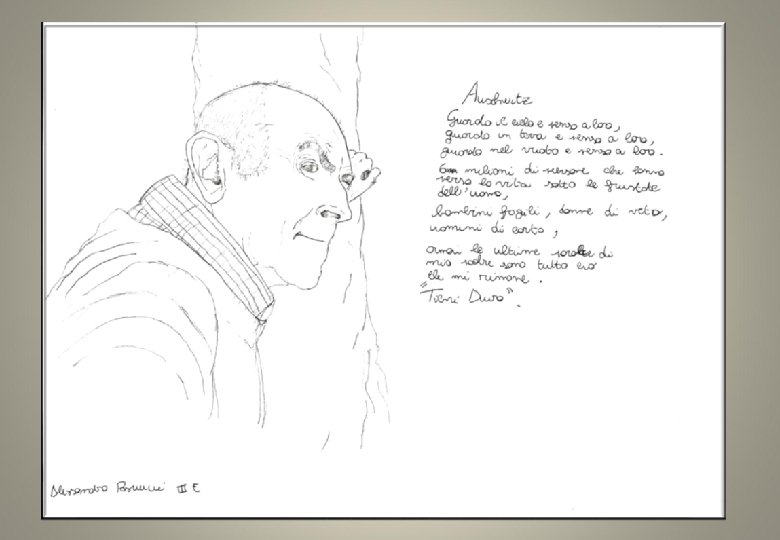 Auschwitz
Guardo il cielo e penso a loro,
guardo in terra e penso a loro,
guardo nel vuoto e penso a loro.
6 milioni di persone che
perso la vita sotto le frustate
dell'uomo,
bambini fragili, donne di vetro,
uomini di carta,
ormai le ultime parole di
mio padre sono tutto ciò
che mi rimane.
"Tieni Duro".
Alessandro III E